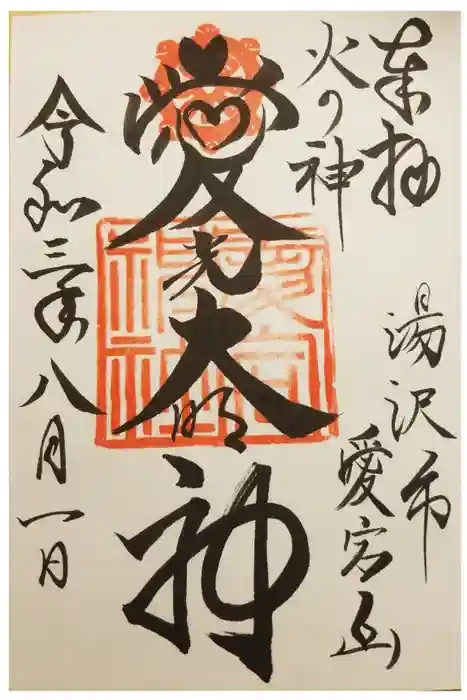 奉拝
火の神
湯沢市
愛宕山
愛宕大明神
愛宕
神社
令和三年八月一日